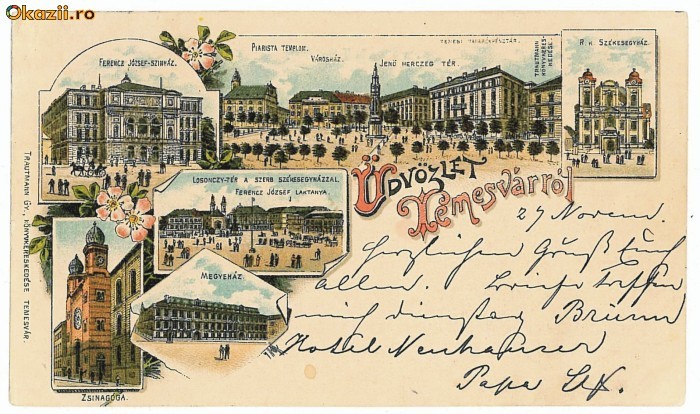 Okazii.ro
FERENCZ JÓZSEF-SZINHÁZ.
PIARISTA TEMPLOM.
VÁROSHÁZ.
JENŐ HERCZEG TÉR.
TRAUTMANN KÖNYVKERES-
KEDÉSE.
R. K. SZÉKESEGYHÁZ.
Üdvözlet
Temesvárról
LOSONCZY-TÉR A SZERB SZÉKESEGYHÁZZAL.
FERENCZ JÓZSEF LAKTANYA.
MEGYEHÁZ.
ZSINAGÓGA.
TRAUTMANN GY. KÖNYVKERESKEDÉSE TEMESVÁR.
27 Novem.
Herzlichen Gruß Euch
allen. treffen
mich dienstag Brünn
Hotel Neuhauser
Papa